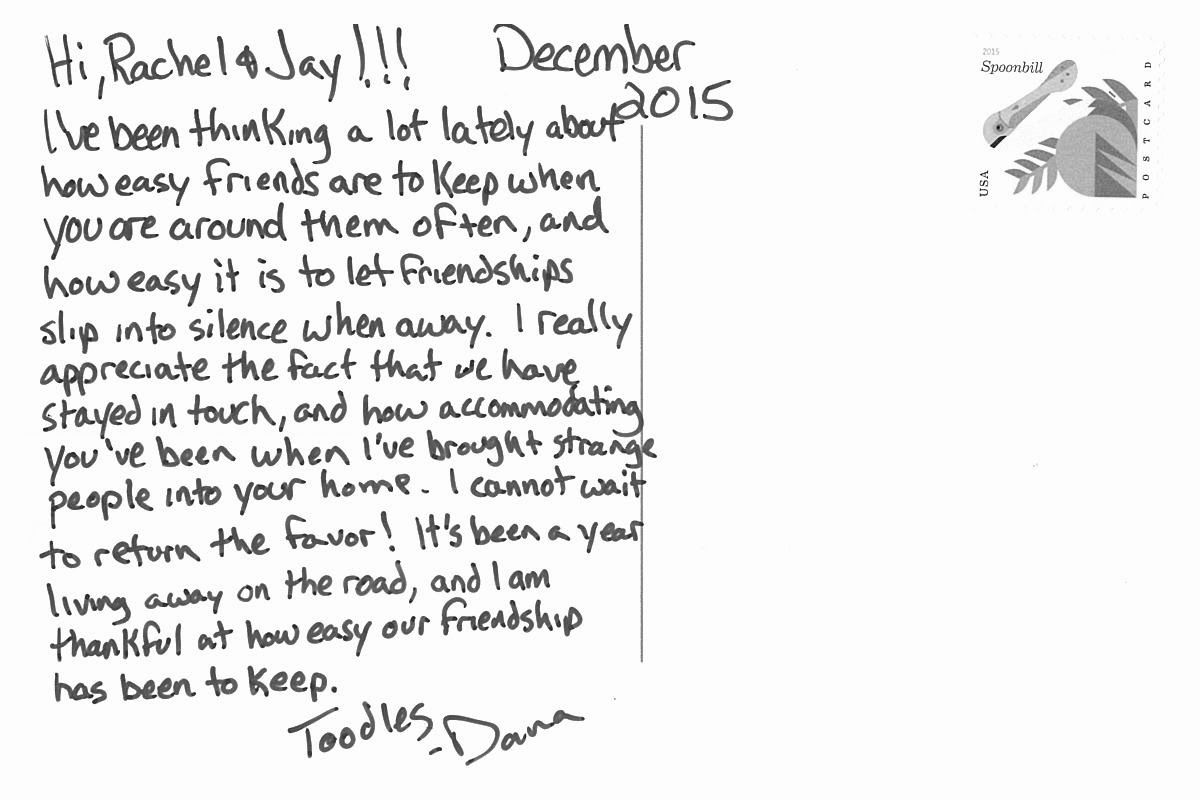 Hi, Rachel & Jay!!! December
2015
I've been thinking a lot lately about
how easy friends are to keep when
you are around them often, and
how easy it is to let friendships
slip into silence when away. I really
appreciate the fact that we have
stayed in touch, and how accommodating
you've been when I've brought strange
people into your home. I cannot wait
to return the favor! It's been a year
living away on the road, and I am
thankful at how easy our friendship
has been to keep.
Toodles
-Dana
2015
Spoonbill
USA
POSTCARD